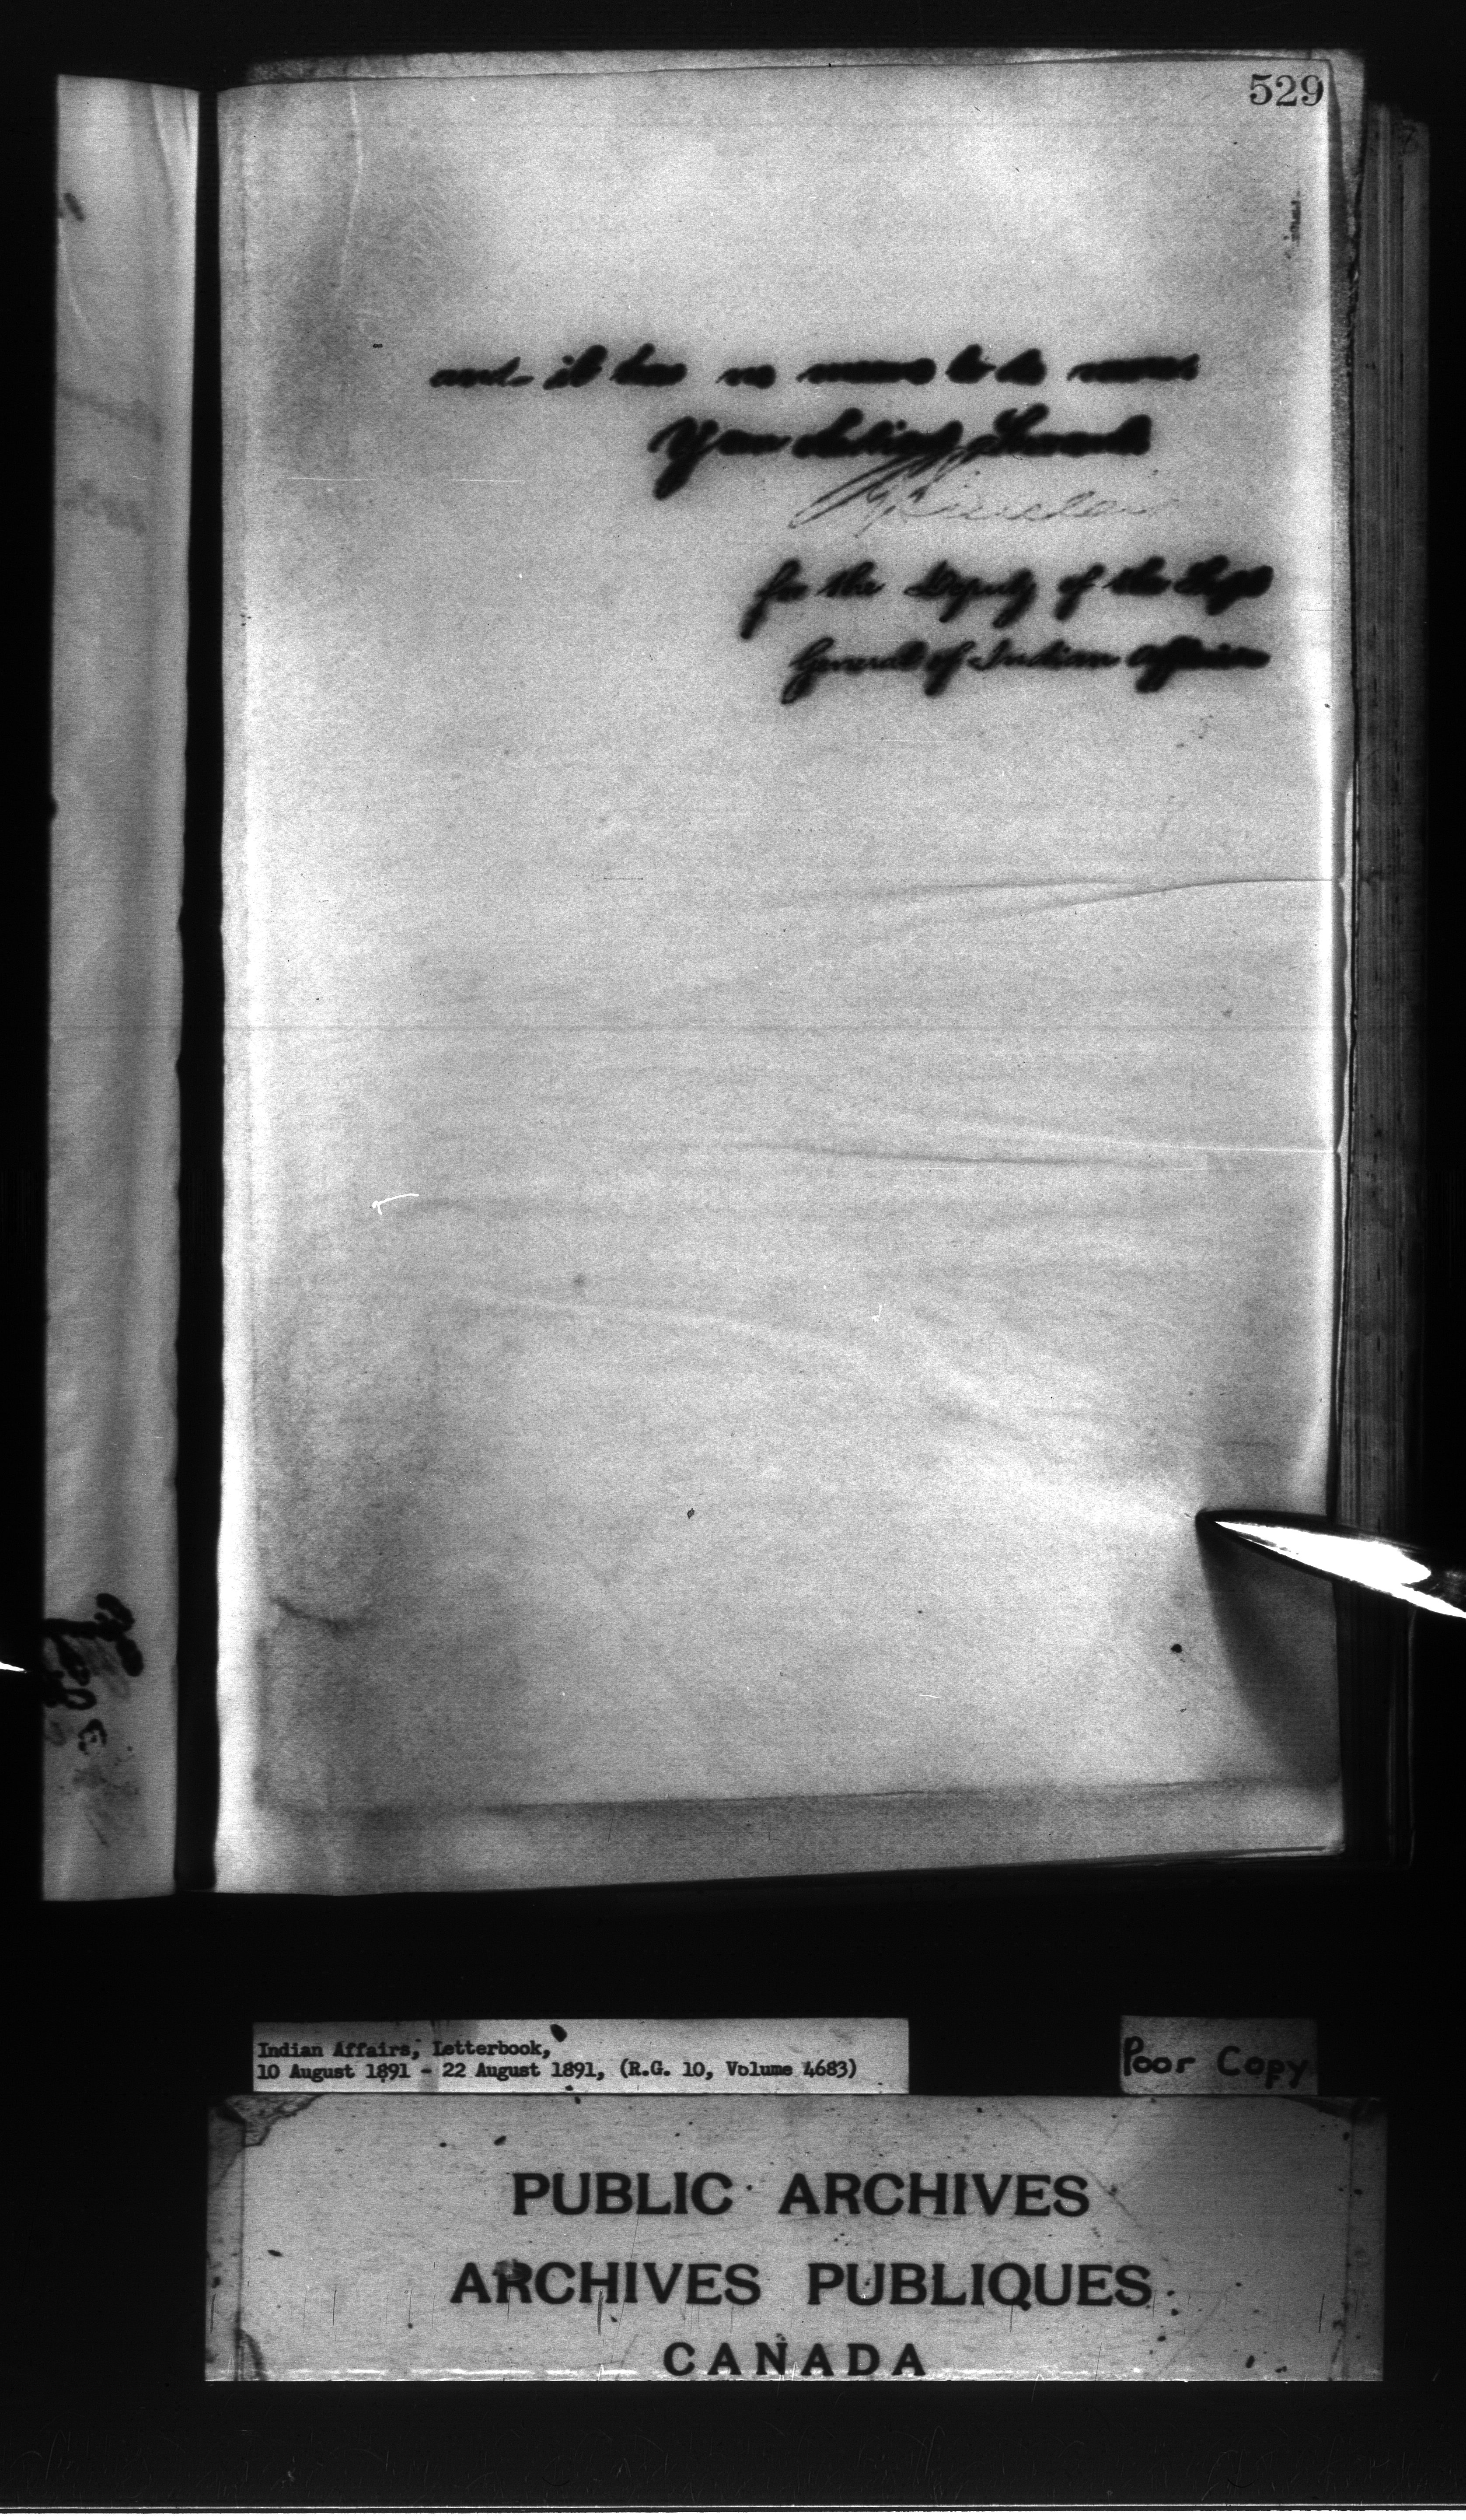 529
and it has no means to do more
Your obedient Servant
R Sinclair
for the Deputy of the Supt
General of Indian Affairs
Indian Affairs, Letterbook,
10 August 1891 - 22 August 1891, (R.G. 10, Volume 4683)
Poor Copy
PUBLIC ARCHIVES
ARCHIVES PUBLIQUES
CANADA